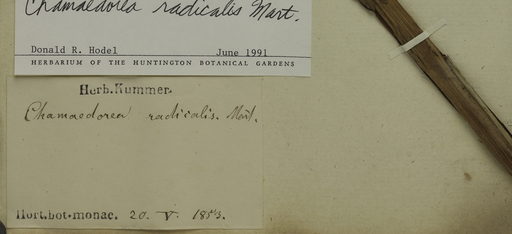 Chamaedorea radicalis Mart.
Donald R. Hodel June 1991
HERBARIUM OF THE HUNTINGTON BOTANICAL GARDENS
Herb. Kummer.
Chamaedorea radicalis. Mart.
Hort. bot. monac. 20. V. 1853.